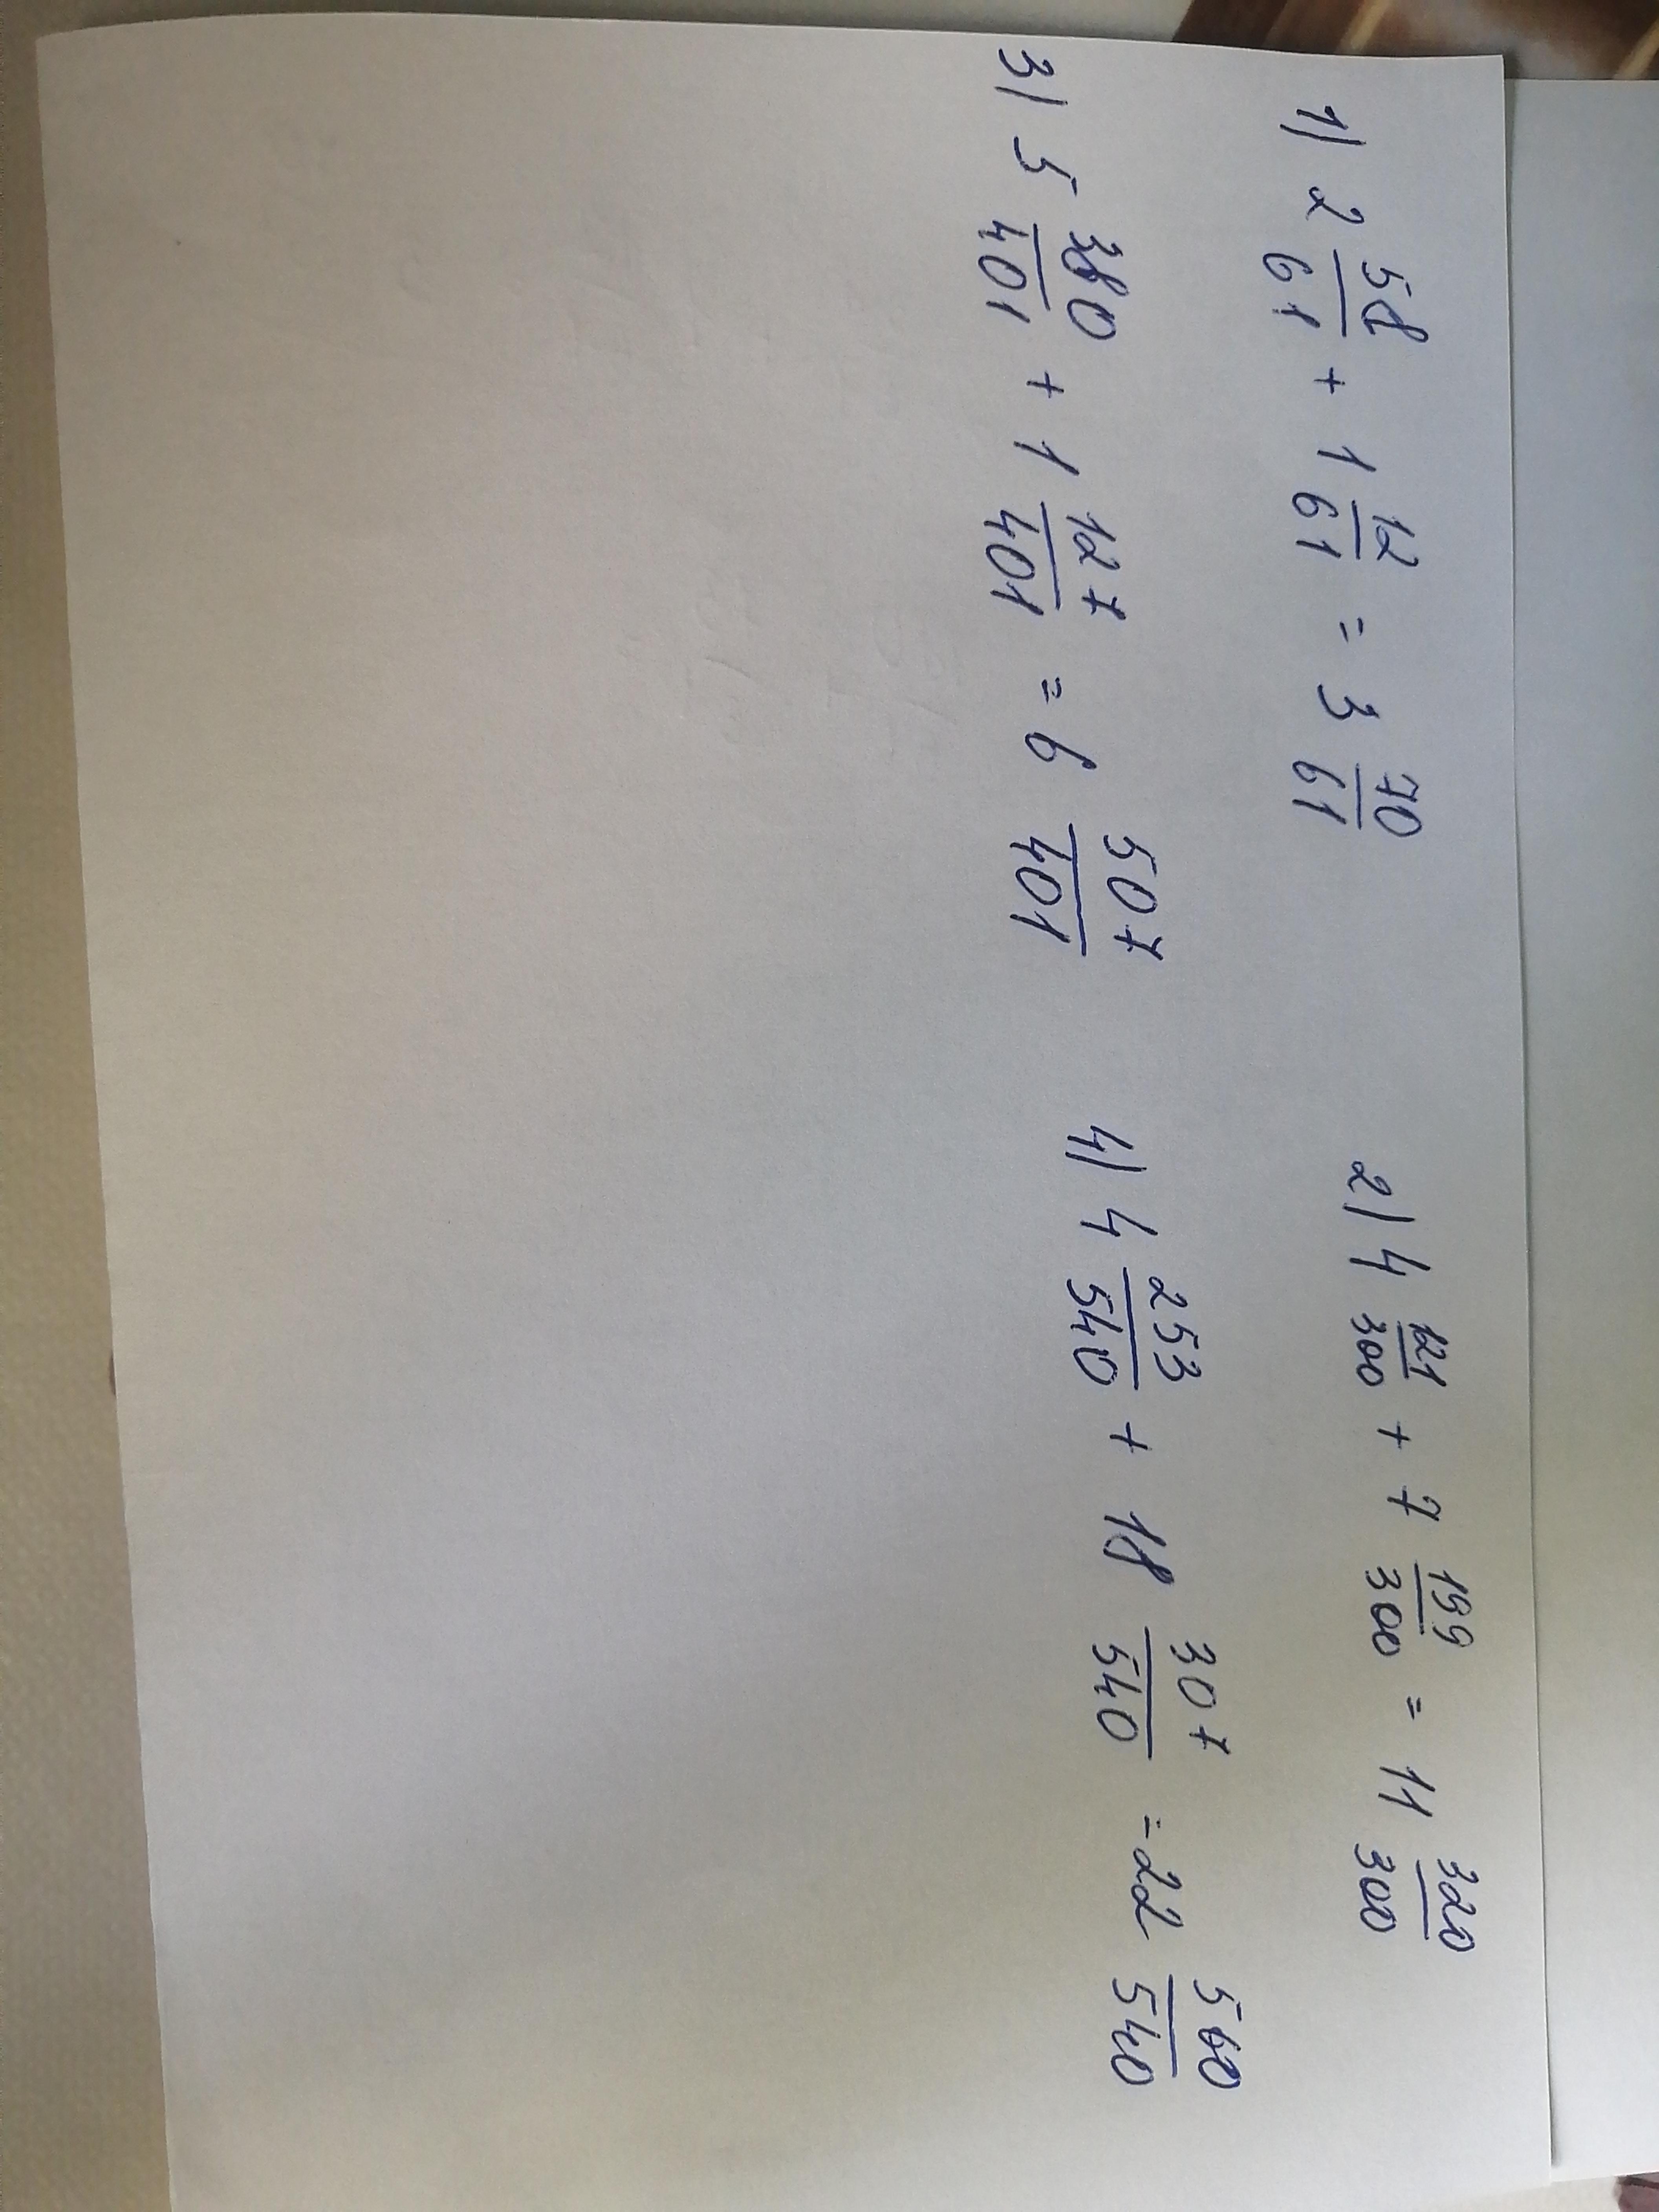 1) 2 58/61 + 1 12/61 = 3 70/61
2) 4 121/300 + 7 199/300 = 11 320/300
3) 5 380/401 + 1 127/401 = 6 507/401
4) 4 253/540 + 18 307/540 = 22 560/540